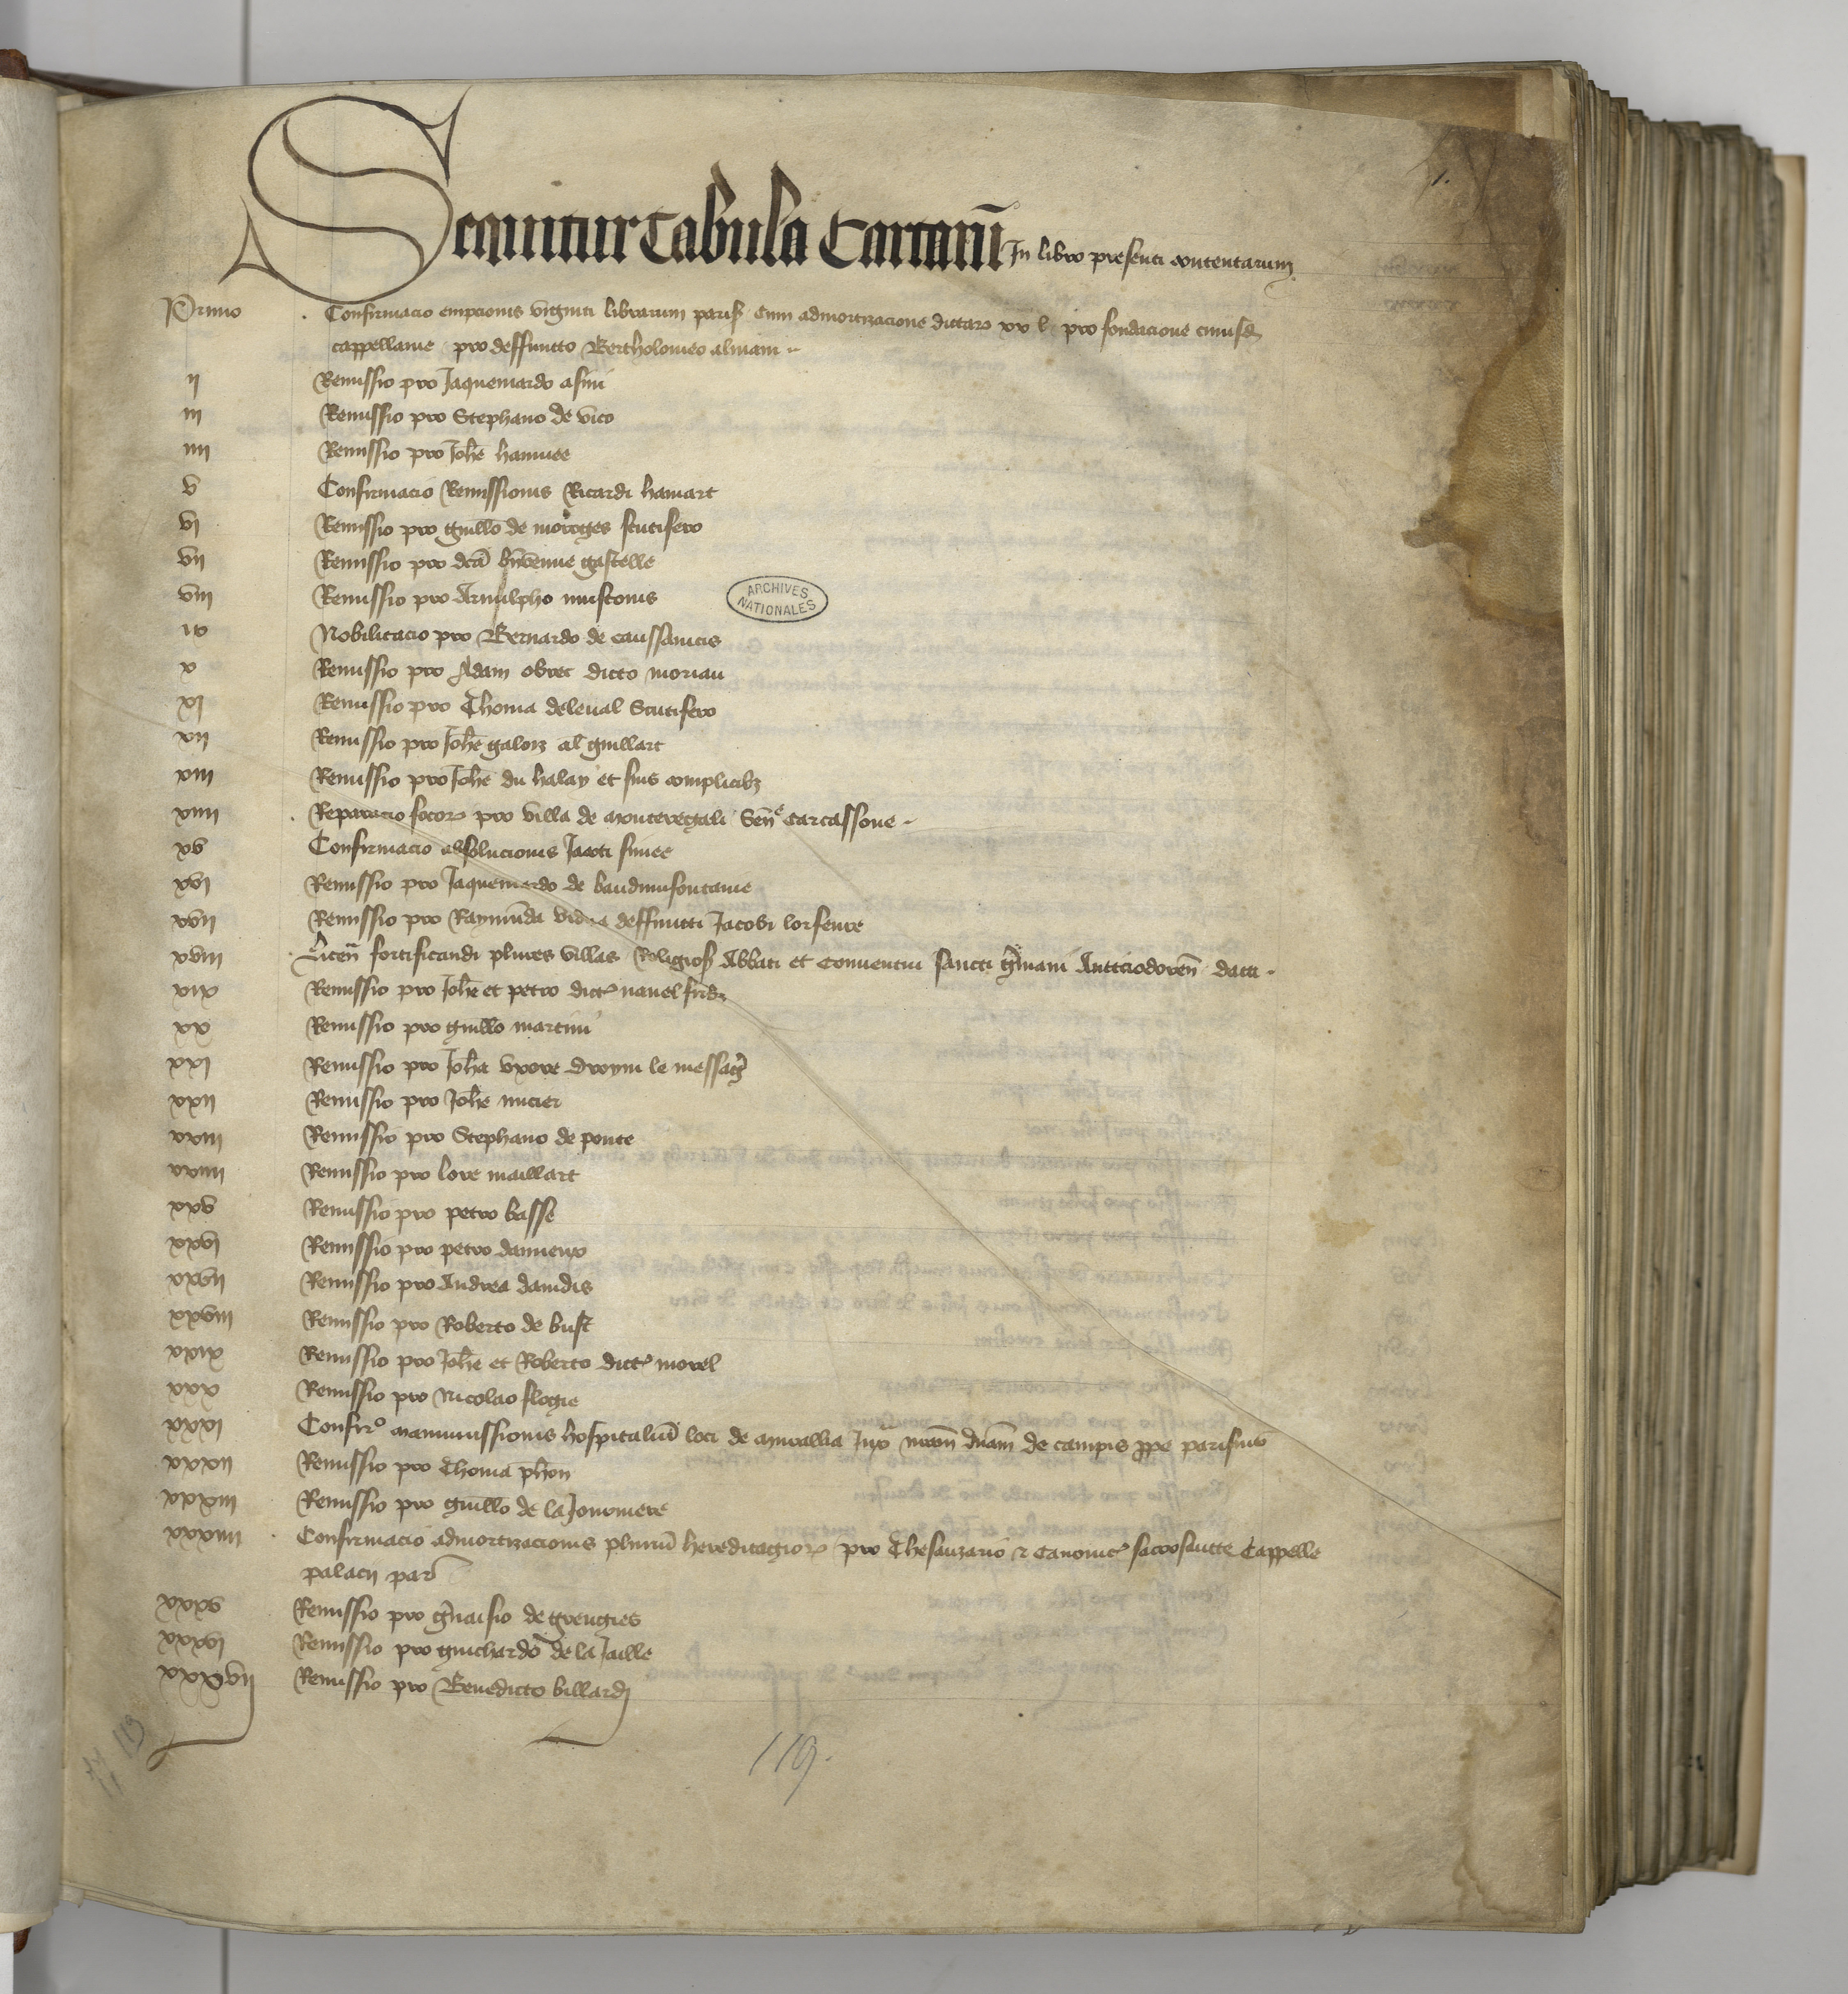 1.
Sequitur Tabula Cartarũ In libro presenti contentarum
Primo Confirmacio empcionis viginti librarum paris cum admortizacione dictarꝝ xx l pro fondacione cuiusd
cappellanie pro deffuncto Bertholomeo almani
ij Remissio pro Jaquemardo asini
iij Remissio pro Stephano de vico
iiij Remissio pro Johẽ hannuee
v Confirmacio Remissionis Ricardi hamart
vj Remissio pro guillõ de moroges scutifero
vij Remissio pro dc̃ã bñvenue gastelle
viij Remissio pro Arnulpho mustonis
ix Nobilitacio pro Bernardo de caussanicis
x Remissio pro Adam obret dicto moriau
xj Remissio pro Thoma deleval Scutifero
xij Remissio pro Johẽ galoiz al guillart
xiij Remissio pro Johẽ du halay et suis complicibꝫ
xiiij Reparacio focorꝝ pro villa de monteregali Senẽ Carcassone
xv Confirmacio absolucionis Jacoti simee
xvj Remissio pro Jaquemardo de baudinusfontanie
xvij Remissio pro Raymũda vidua deffuncti Jacobi lorfeure
xviij Licen̄ fortificandi plures villas Religios Abbati et Conventui sancti g̃mani Autissiodoren̄ data
xix Remissio pro Johẽ et petro dict navel frĩbꝫ
xx Remissio pro guillõ martini
xxj Remissio pro Joh̃a uxore droyni le messag̃
xxij Remissio pro Johẽ mitier
xxiij Remissio pro Stephano de ponte
xxiiij Remissio pro lore maillart
xxv Remissio pro petro basse
xxvj Remissio pro petro damieux
xxvij Remissio pro Andrea davidis
xxviij Remissio pro Roberto de bust
xxix Remissio pro Johẽ et Roberto dict morel
xxx Remissio pro Nicolao flogie
xxxj Confirº manumissionis hospitaliũ loci de murallia Juxᵃ nr̃am dñam de campis ꝓpe parisius
xxxij Remissio pro Thoma ph̃on
xxxiij Remissio pro guillõ de la Jonomere
xxxiiij Confirmacio admortizacionis pluriũ hereditagiorꝝ pro Thesaurario & Canonic sacrosancte Cappelle
palacij par
xxxv Remissio pro g̃vaisio de greugies
xxxvj Remissio pro guichardo de la Jaille
xxxvij Remissio pro Benedicto billardj
ARCHIVES
NATIONALES
119.
119